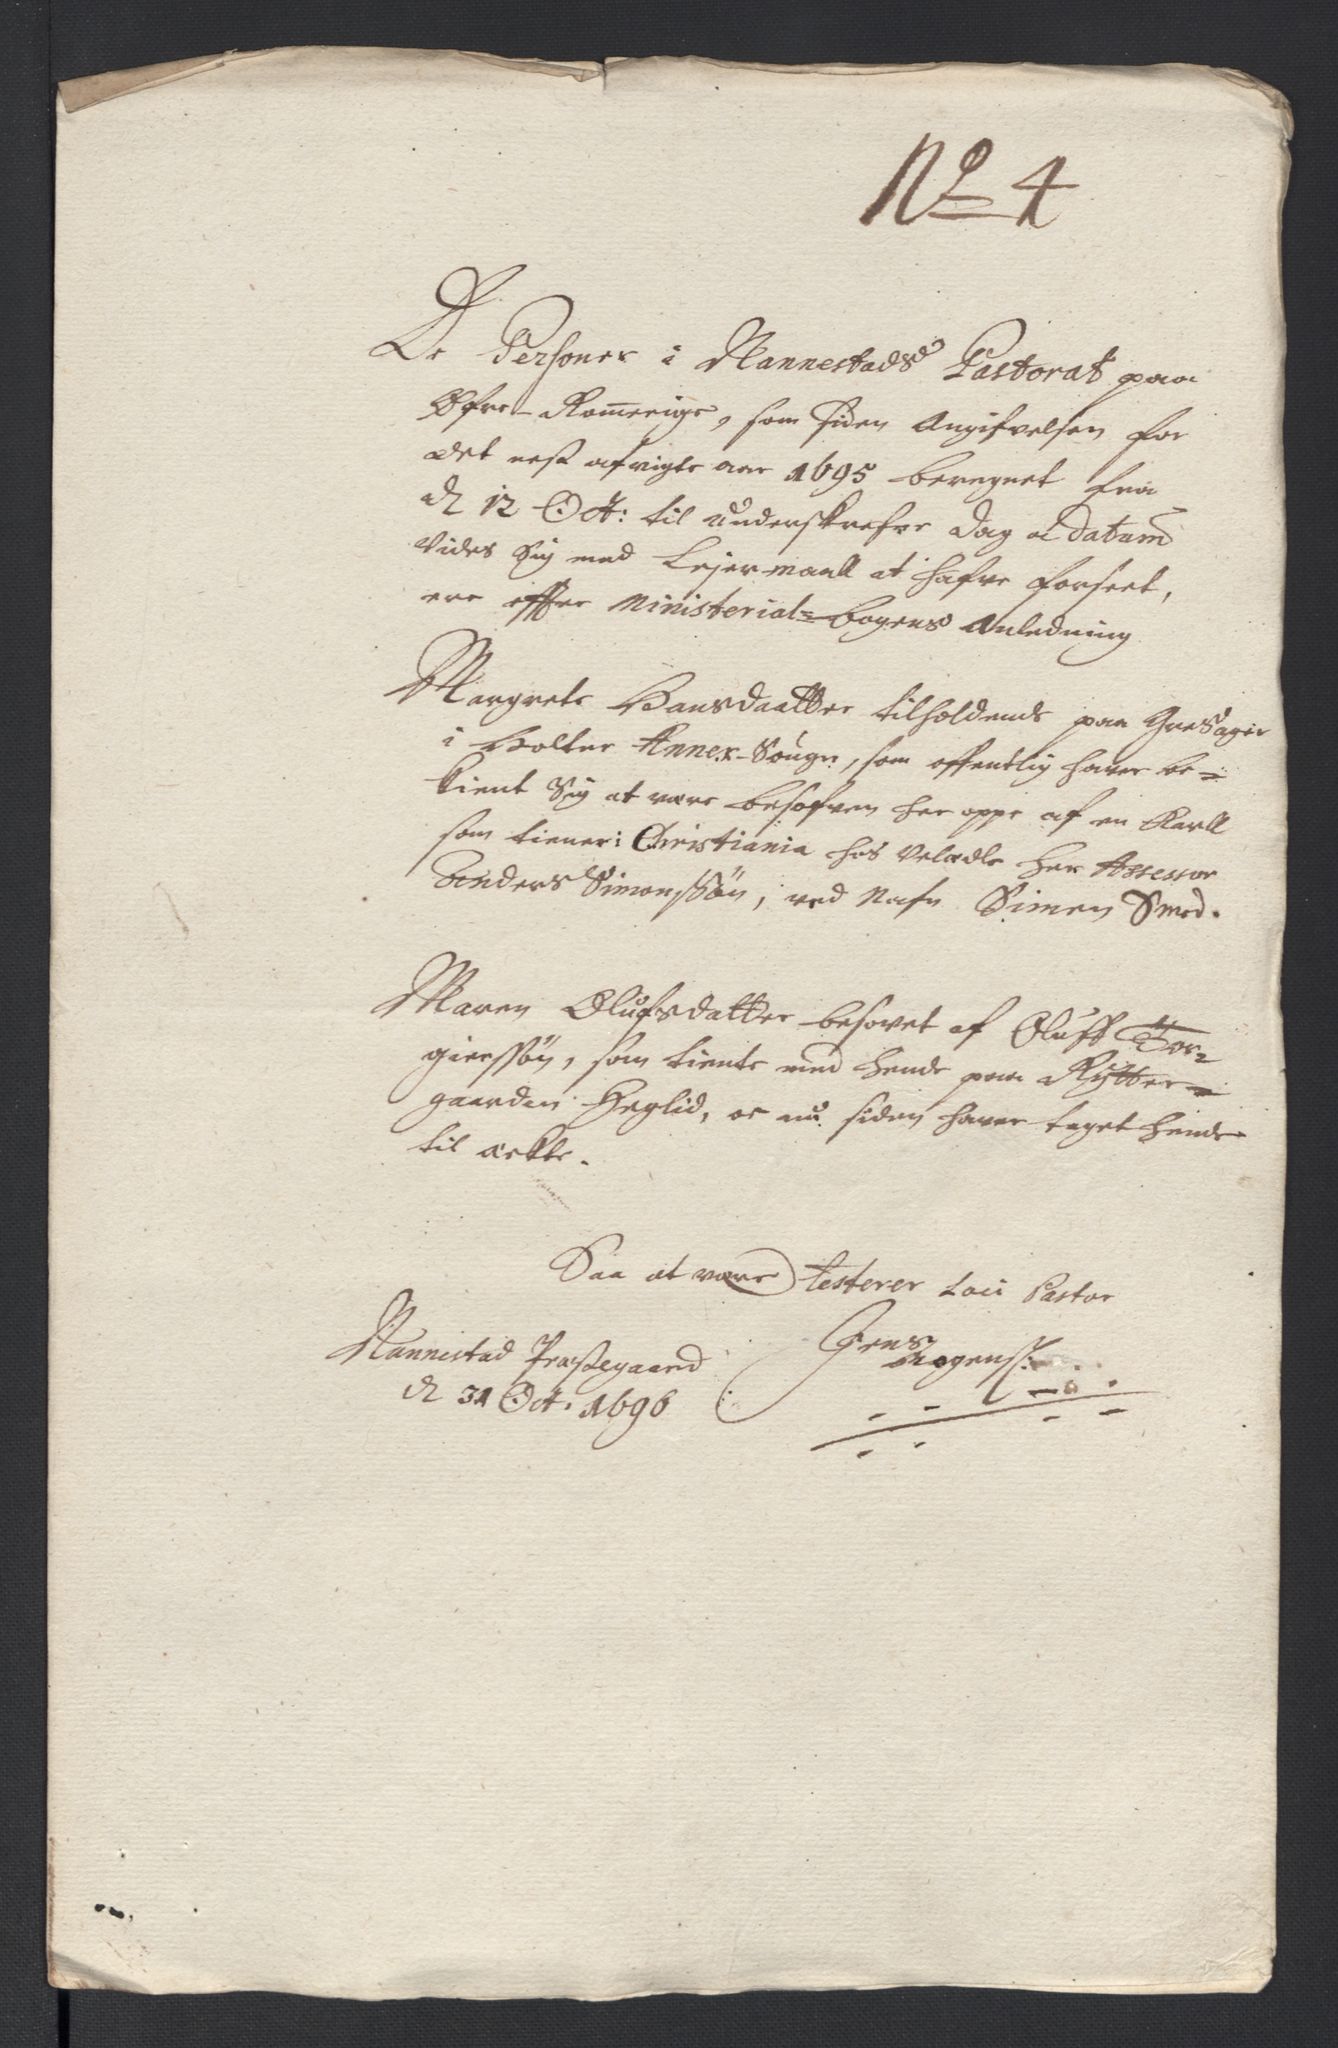 No 4
De Personer i Nannestads Pastorat paa
Øfre-Romerige, som siden Angifvelsen for
det nest afvigte aar 1695 beregnet fra
d 12 Oct: til underskrefne Dag oc datum
vides Sig med Lejermaall at hafve forseet,
ere effter Ministerial=bogens Anledning
Margrete Hansdaatter tilholdende paa
i Holter Annex-Sougn, som offentlig haver be=
kient Sig at være besofven her oppe af en Karll
som tiener i Christiania hos Velædle Her Assessor
Anders Simonssøn, ved Nafn Simen Smed.
Maren Olufsdatter besovet af Oluff Tor=
gierssøn, som tiente med hende paa Rytter=
gaarden Heglid, oc nu siden haver taget hende
til ækte.
Saa at være testerer Loci Pastor
Nannestad Præstegaard
d 31 Oct. 1696
Jens
Mogenss: